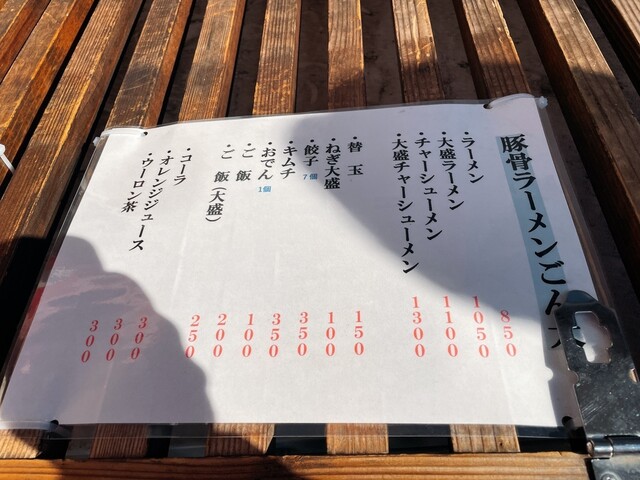 豚骨ラーメンごん
・ラーメン 850
・大盛ラーメン 1050
・チャーシューメン 1100
・大盛チャーシューメン 1300
・替 玉 150
・ねぎ大盛 100
・餃子 7個 350
・キムチ 350
・おでん 1個 100
・ご 飯 200
・ご 飯(大盛) 250
・コーラ 300
・オレンジジュース 300
・ウーロン茶 300